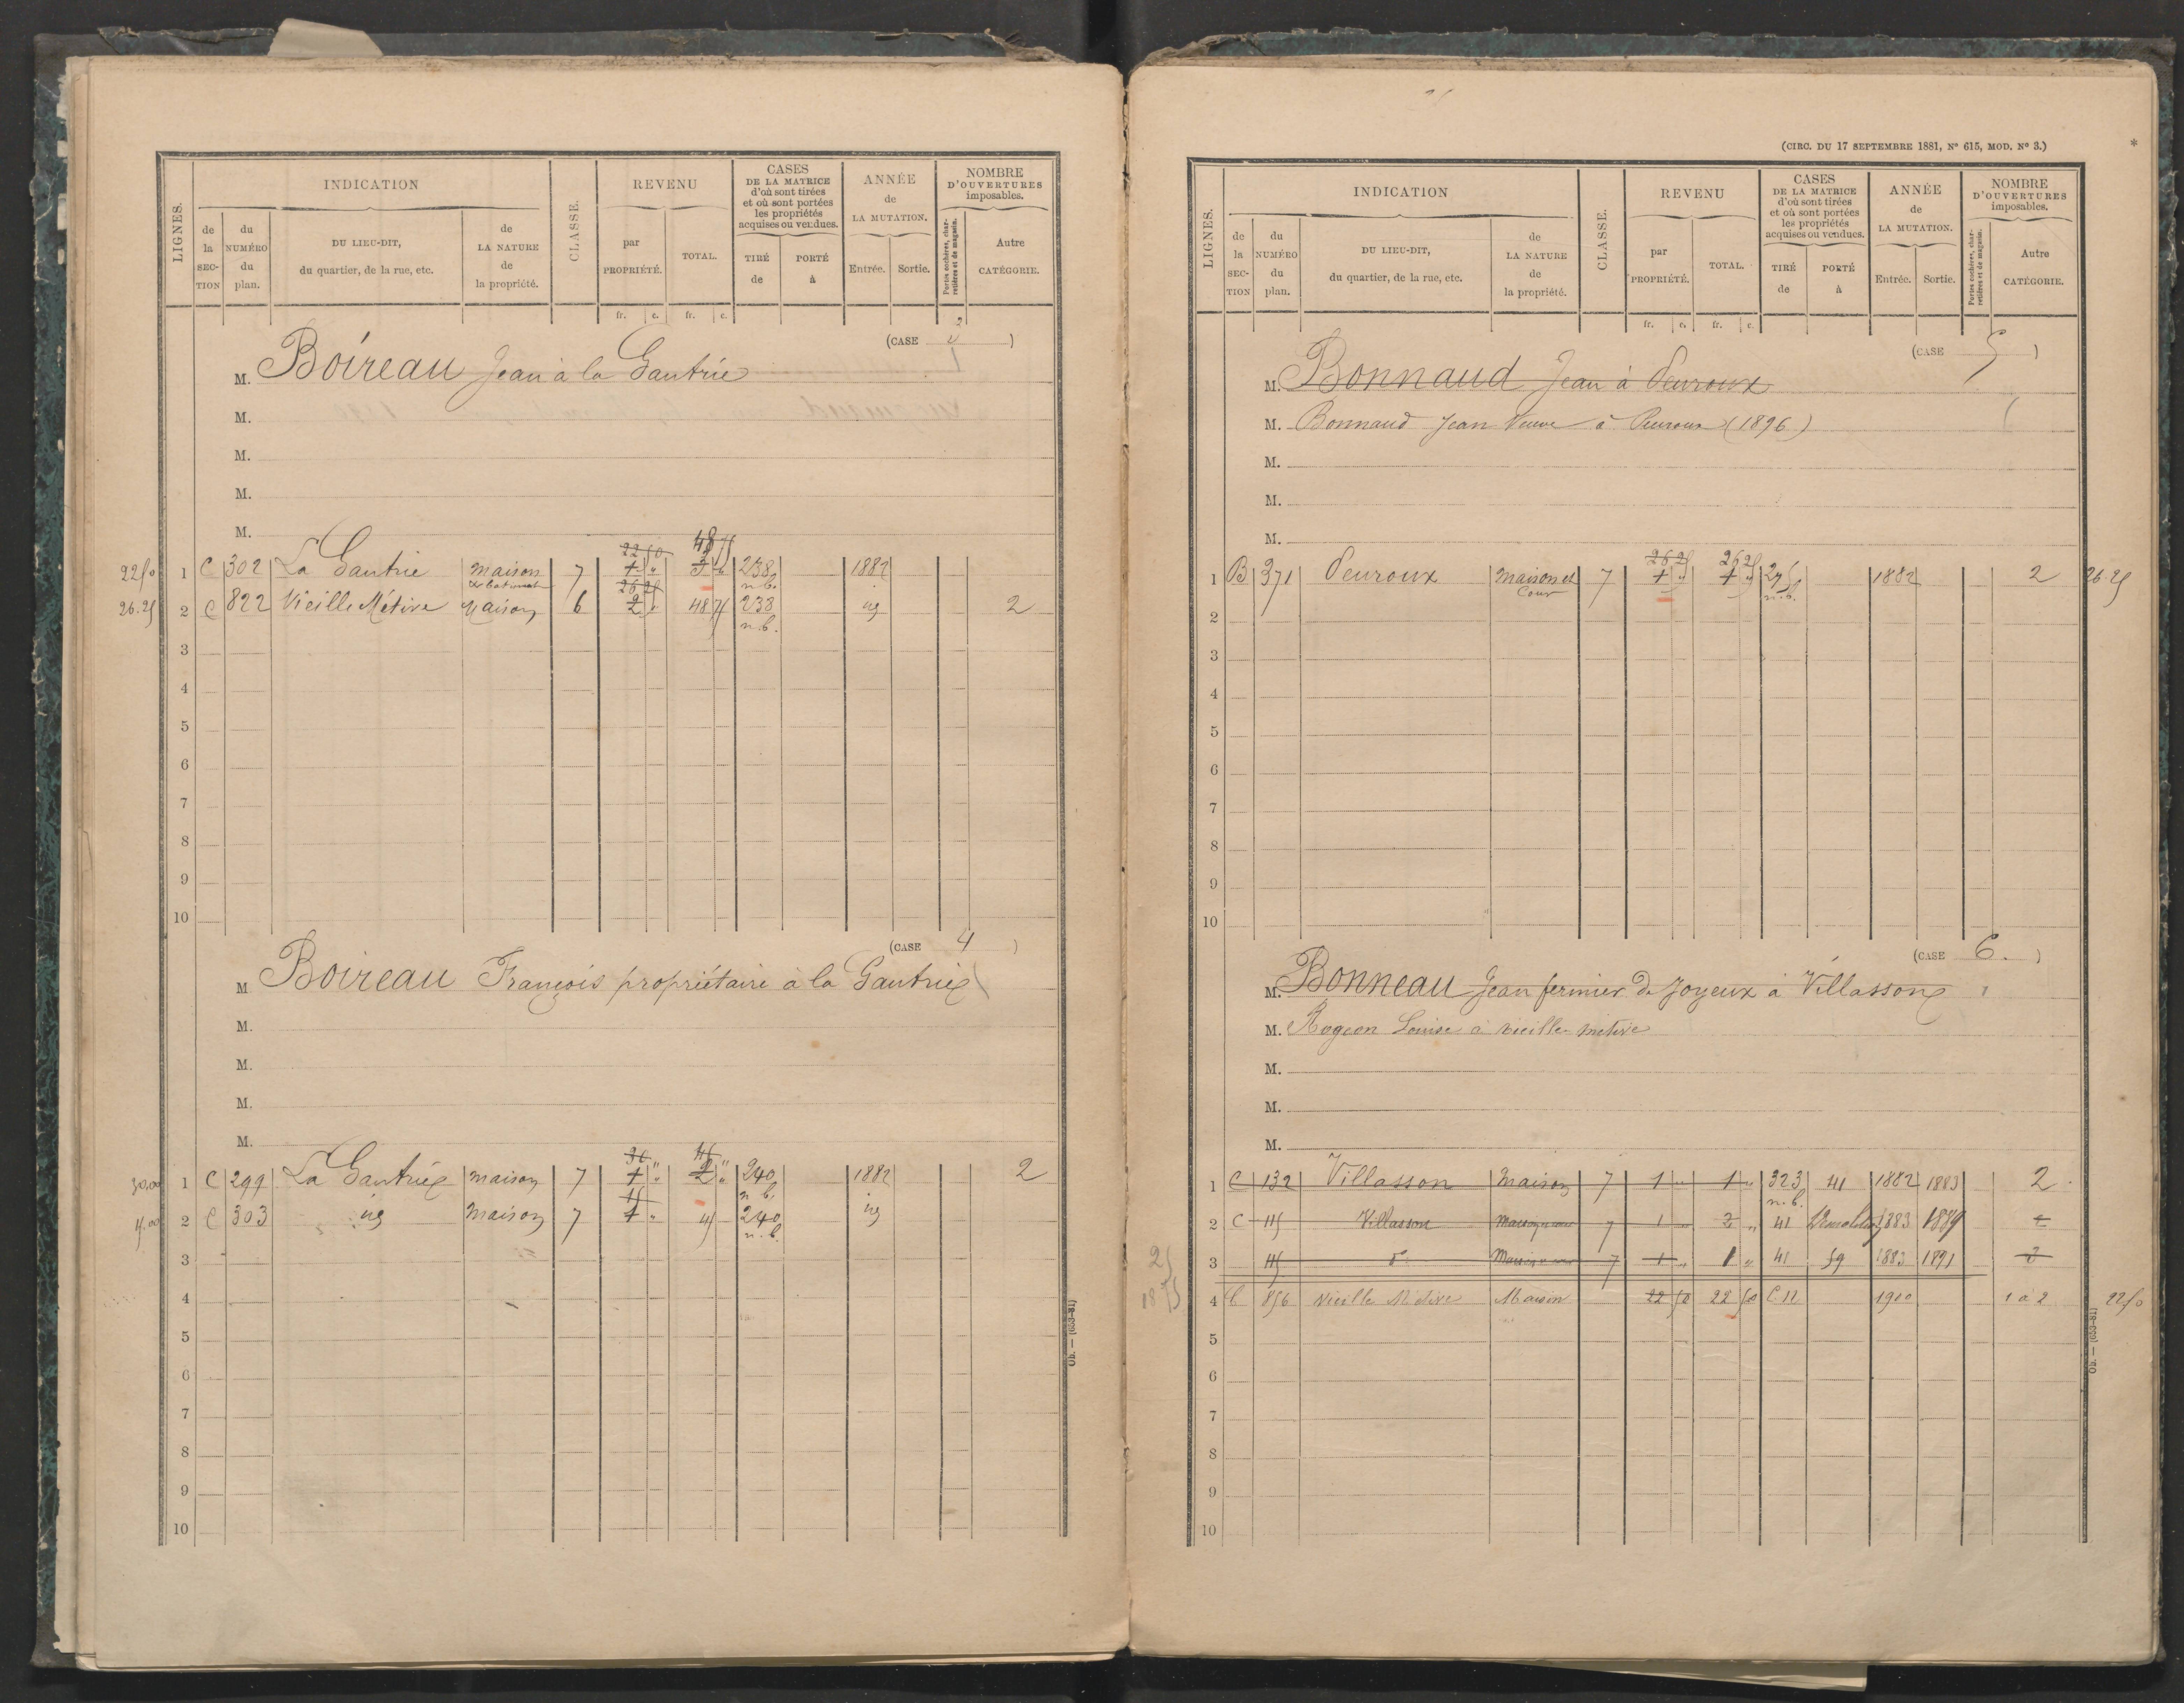 LIGNES.
INDICATION
de la SECTION
du NUMÉRO du plan.
DU LIEU-DIT, du quartier, de la rue, etc.
de LA NATURE de la propriété.
CLASSE.
REVENU
par PROPRIÉTÉ.
TOTAL.
CASES DE LA MATRICE d'où sont tirées et où sont portées les propriétés acquises ou vendues.
TIRÉ de
PORTÉ à
ANNÉE de LA MUTATION.
Entrée.
Sortie.
NOMBRE D'OUVERTURES imposables.
Portes cochères, charretières et de magasin.
Autre CATÉGORIE.
fr. c. fr. c.
(CASE )
M. Boireau Jean à la Gautrie
M.
M.
M.
M.
22 50 48 75
22 50 1 C 302 La Gautrie maison & batiment 7 1 " 3 " 238 n.b. 1882
26 25
26.25 2 C 822 Vieille Métive Maison 6 2 " 48 75 238 n.b. id 2
3
4
5
6
7
8
9
10
(CASE 4 )
M Boireau François propriétaire à la Gautrie
M.
M.
M.
M.
30 " 45 "
30,00 1 C 299 La Gautrie maison 7 1 " 2 " 240 n.b. 1882 2
15
2 C 303 id maison 7 1 " 45 240 n.b. id
3
4
5
6
7
8
9
10
Ob. — (653-81)
(CIRC. DU 17 SEPTEMBRE 1881, N° 615, MOD. N° 3.)
*
LIGNES.
INDICATION
de la SECTION
du NUMÉRO du plan.
DU LIEU-DIT, du quartier, de la rue, etc.
de LA NATURE de la propriété.
CLASSE.
REVENU
par PROPRIÉTÉ.
TOTAL.
CASES DE LA MATRICE d'où sont tirées et où sont portées les propriétés acquises ou vendues.
TIRÉ de
PORTÉ à
ANNÉE de LA MUTATION.
Entrée.
Sortie.
NOMBRE D'OUVERTURES imposables.
Portes cochères, charretières et de magasin.
Autre CATÉGORIE.
fr. c. fr. c.
(CASE 5 )
M. Bonnaud Jean à Peuroux
M. Bonnaud Jean Veuve à Peuroux (1896)
M.
M.
M.
26 25 26 25
1 B 371 Peuroux maison et Cour 7 1 " 1 " n.b. 1882 2 26.25
2
3
4
5
6
7
8
9
10
(CASE 6. )
M. Bonneau Jean fermier de Joyeux à Villasson
M. Rogeon Louise à vieille métive
M.
M.
M.
1 C 132 Villasson Maison 7 1 " 1 " 323 n.b. 41 1882 1883 2
2 C 115 Villasson Maison 7 1 " 2 " 41 1883 1889
3 115 d° Maison 7 1 " 1 " 41 59 1883 1891 2
4 C 856 Vieille Métive Maison 22 50 22 50 C N 1900 1 à 2 22 50
5
6
7
8
9
10
Ob. — (653-81)